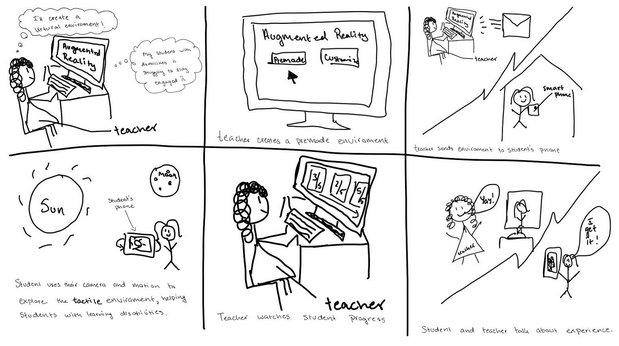 I'd create a
virtural enviroment!
Augmented
Reality
My student with
disabilities is
struggling to stay
engaged :(
teacher
Augmented Reality
Premade
Customize
teacher creates a premade enviroment
Augmented
Reality
teacher
smart
phone
teacher sends enviroment to student's phone
Sun
Moon
Student's
phone
Student uses their camera and motion to
explore the tactile enviroment, helping
students with learning disabilities.
teacher
Teacher watches student progress
Yay!
I
get
it!
Student and teacher talk about experience.